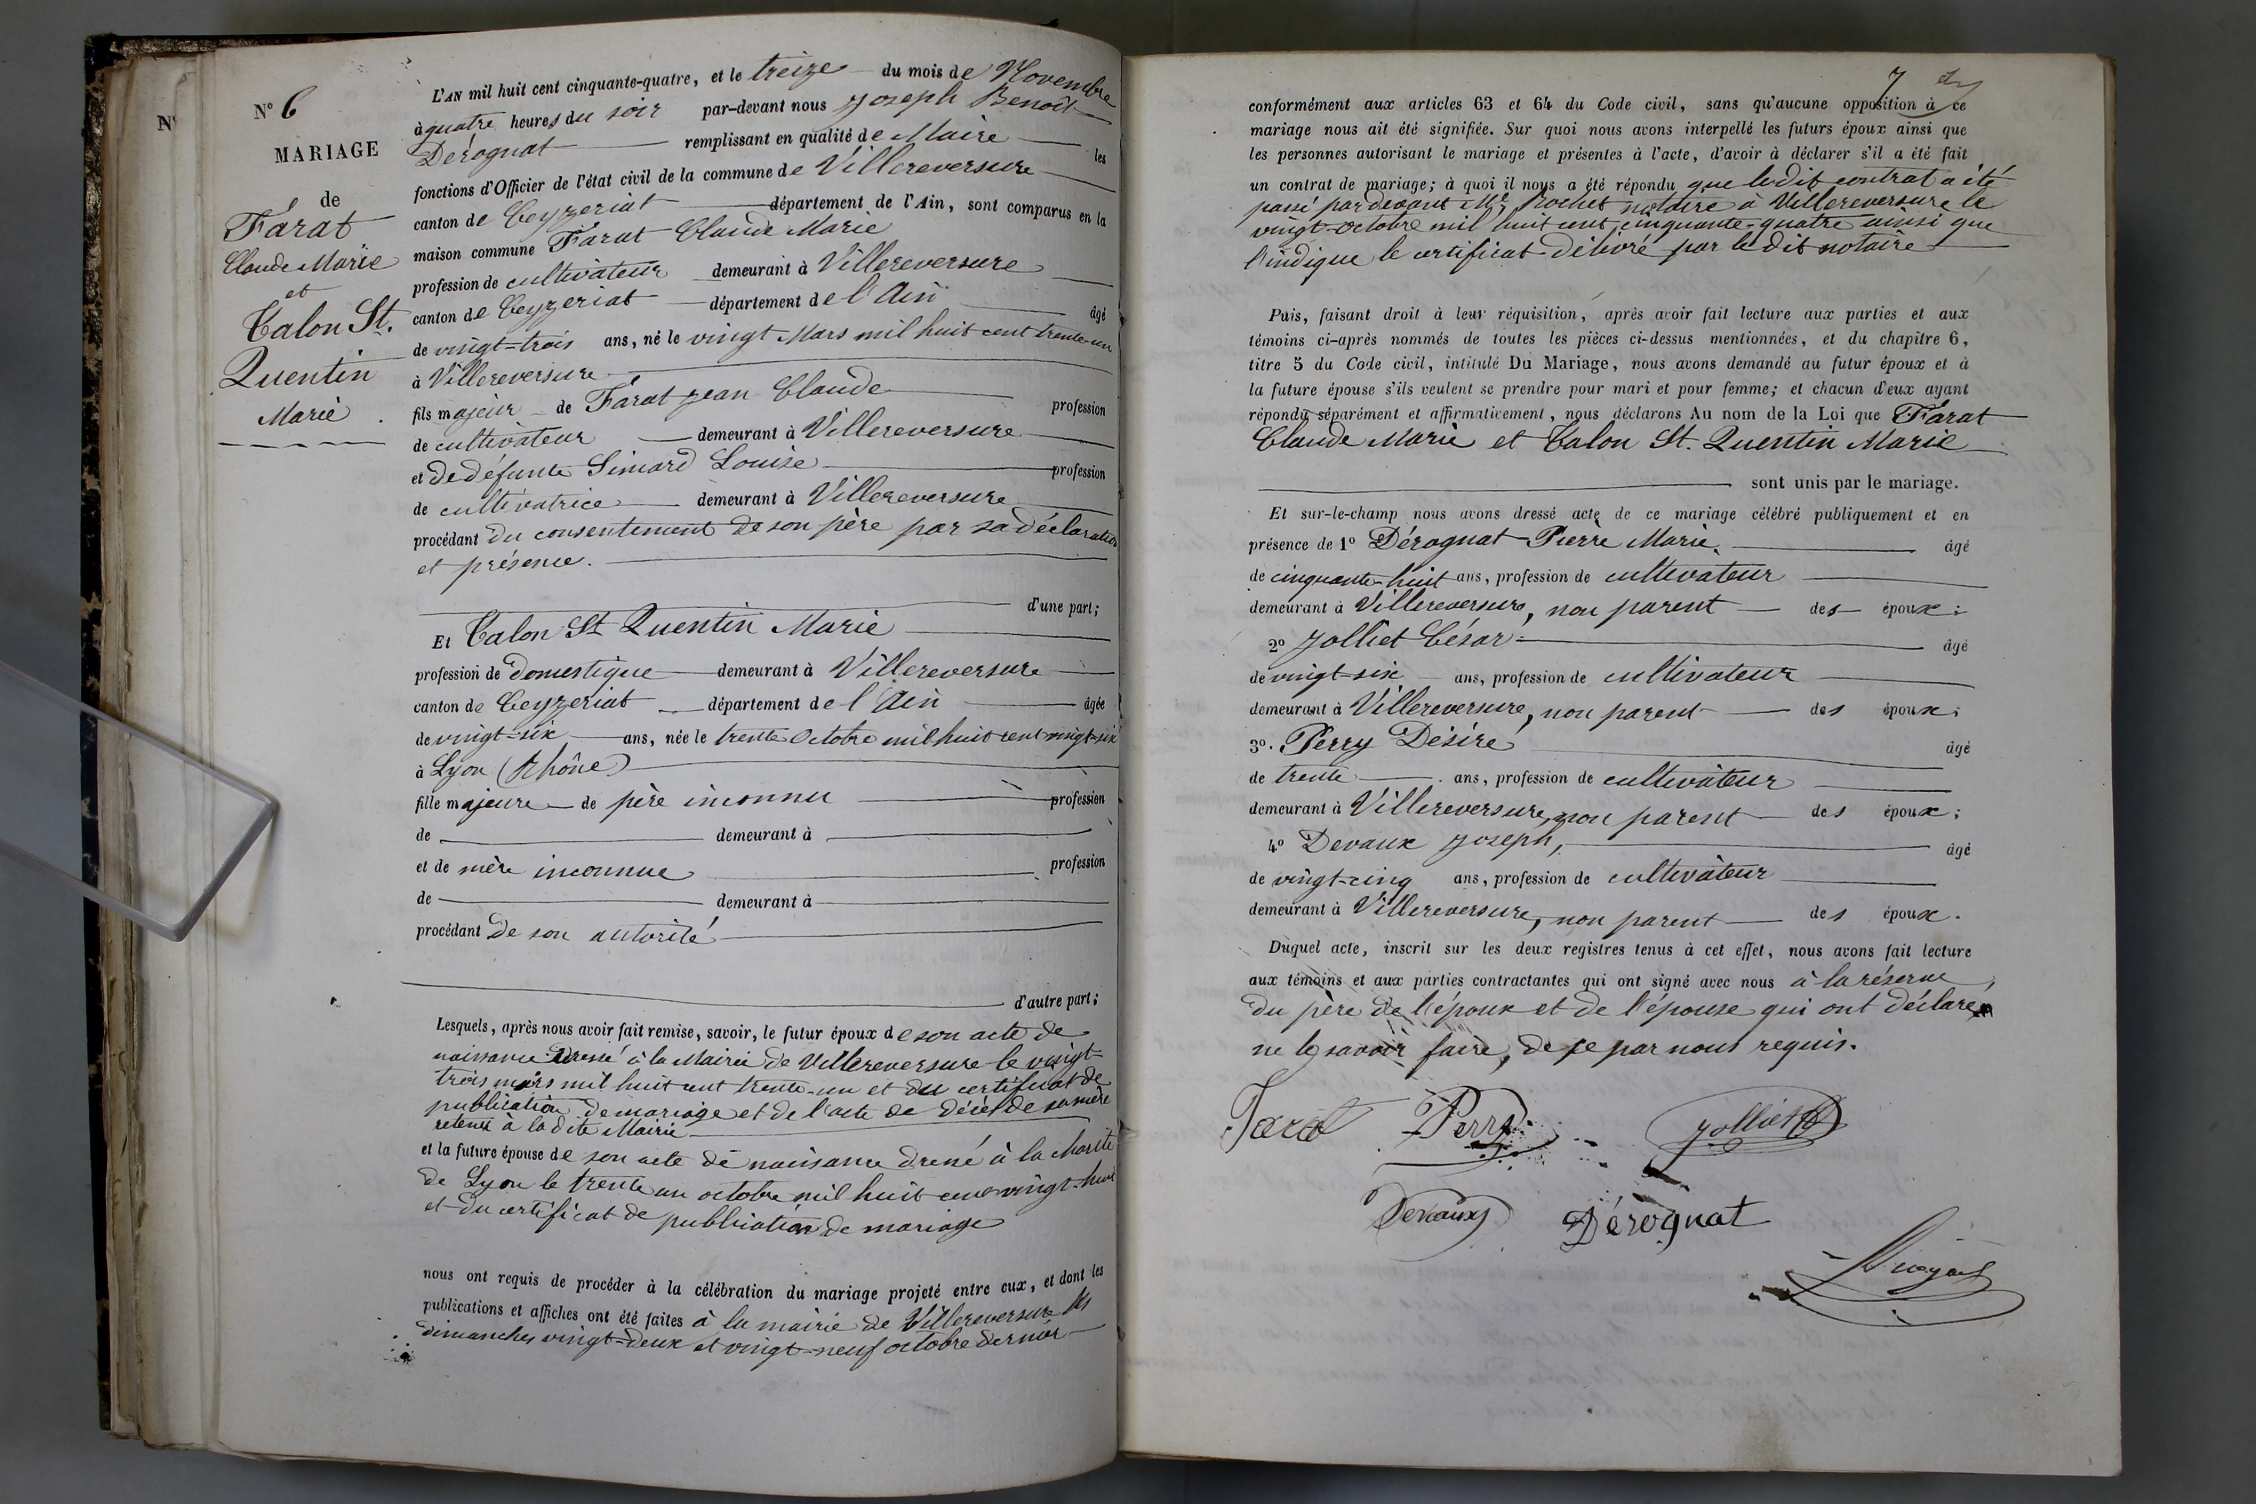 N°
N° 6
MARIAGE
de
Farat
Claude Marie
et
Calon St.
Quentin
Marie
L'AN mil huit cent cinquante-quatre, et le treize du mois de Novembre
à quatre heures du soir par-devant nous Joseph Benoît
Dérognat remplissant en qualité de Maire les
fonctions d'Officier de l'état civil de la commune de Villereversure
canton de Ceyzeriat département de l'Ain, sont comparus en la
maison commune Farat Claude Marie
profession de cultivateur demeurant à Villereversure
canton de Ceyzeriat département de l'Ain âgé
de vingt-trois ans, né le vingt Mars mil huit cent trente-un
à Villereversure
fils majeur de Farat Jean Claude profession
de cultivateur demeurant à Villereversure
et de défunte Simard Louise profession
de cultivatrice demeurant à Villereversure
procédant du consentement de son père par sa déclaration
et présence.
d'une part;
Et Calon St Quentin Marie
profession de domestique demeurant à Villereversure
canton de Ceyzeriat département de l'Ain âgée
de vingt-six ans, née le trente Octobre mil huit cent vingt-six
à Lyon (Rhône)
fille majeure de père inconnu profession
de demeurant à
et de mère inconnue profession
de demeurant à
procédant de son autorité
d'autre part;
Lesquels, après nous avoir fait remise, savoir, le futur époux de son acte de
naissance dressé à la Mairie de Villereversure le vingt-
trois mars mil huit cent trente-un et du certificat de
publication de mariage et de l'acte de décès de sa mère
retenus à la dite Mairie
et la future épouse de son acte de naissance dressé à la charité
de Lyon le trente un octobre mil huit cent vingt-huit
et du certificat de publication de mariage
nous ont requis de procéder à la célébration du mariage projeté entre eux, et dont les
publications et affiches ont été faites à la mairie de Villereversure les
dimanches vingt-deux et vingt-neuf octobre dernier
7
conformément aux articles 63 et 64 du Code civil, sans qu'aucune opposition à ce
mariage nous ait été signifiée. Sur quoi nous avons interpellé les futurs époux ainsi que
les personnes autorisant le mariage et présentes à l'acte, d'avoir à déclarer s'il a été fait
un contrat de mariage; à quoi il nous a été répondu que le dit contrat a été
passé pardevant Me Rochet notaire à Villereversure le
vingt-octobre mil huit cent cinquante-quatre ainsi que
l'indique le certificat délivré par le dit notaire
Puis, faisant droit à leur réquisition, après avoir fait lecture aux parties et aux
témoins ci-après nommés de toutes les pièces ci-dessus mentionnées, et du chapitre 6,
titre 5 du Code civil, intitulé Du Mariage, nous avons demandé au futur époux et à
la future épouse s'ils veulent se prendre pour mari et pour femme; et chacun d'eux ayant
répondu séparément et affirmativement, nous déclarons Au nom de la Loi que Farat
Claude Marie et Calon St. Quentin Marie
sont unis par le mariage.
Et sur-le-champ nous avons dressé acte de ce mariage célébré publiquement et en
présence de 1° Dérognat Pierre Marie, âgé
de cinquante-huit ans, profession de cultivateur
demeurant à Villereversure, non parent des époux;
2° Jolliet César âgé
de vingt-six ans, profession de cultivateur
demeurant à Villereversure, non parent des époux;
3°. Perry Désiré âgé
de trente ans, profession de cultivateur
demeurant à Villereversure, non parent des époux;
4° Devaux Joseph, âgé
de vingt-cinq ans, profession de cultivateur
demeurant à Villereversure, non parent des époux.
Duquel acte, inscrit sur les deux registres tenus à cet effet, nous avons fait lecture
aux témoins et aux parties contractantes qui ont signé avec nous à la réserve
du père de l'époux et de l'épouse qui ont déclaré
ne le savoir faire, de ce par nous requis.
Farat Perry Jolliet
Devaux Dérognat